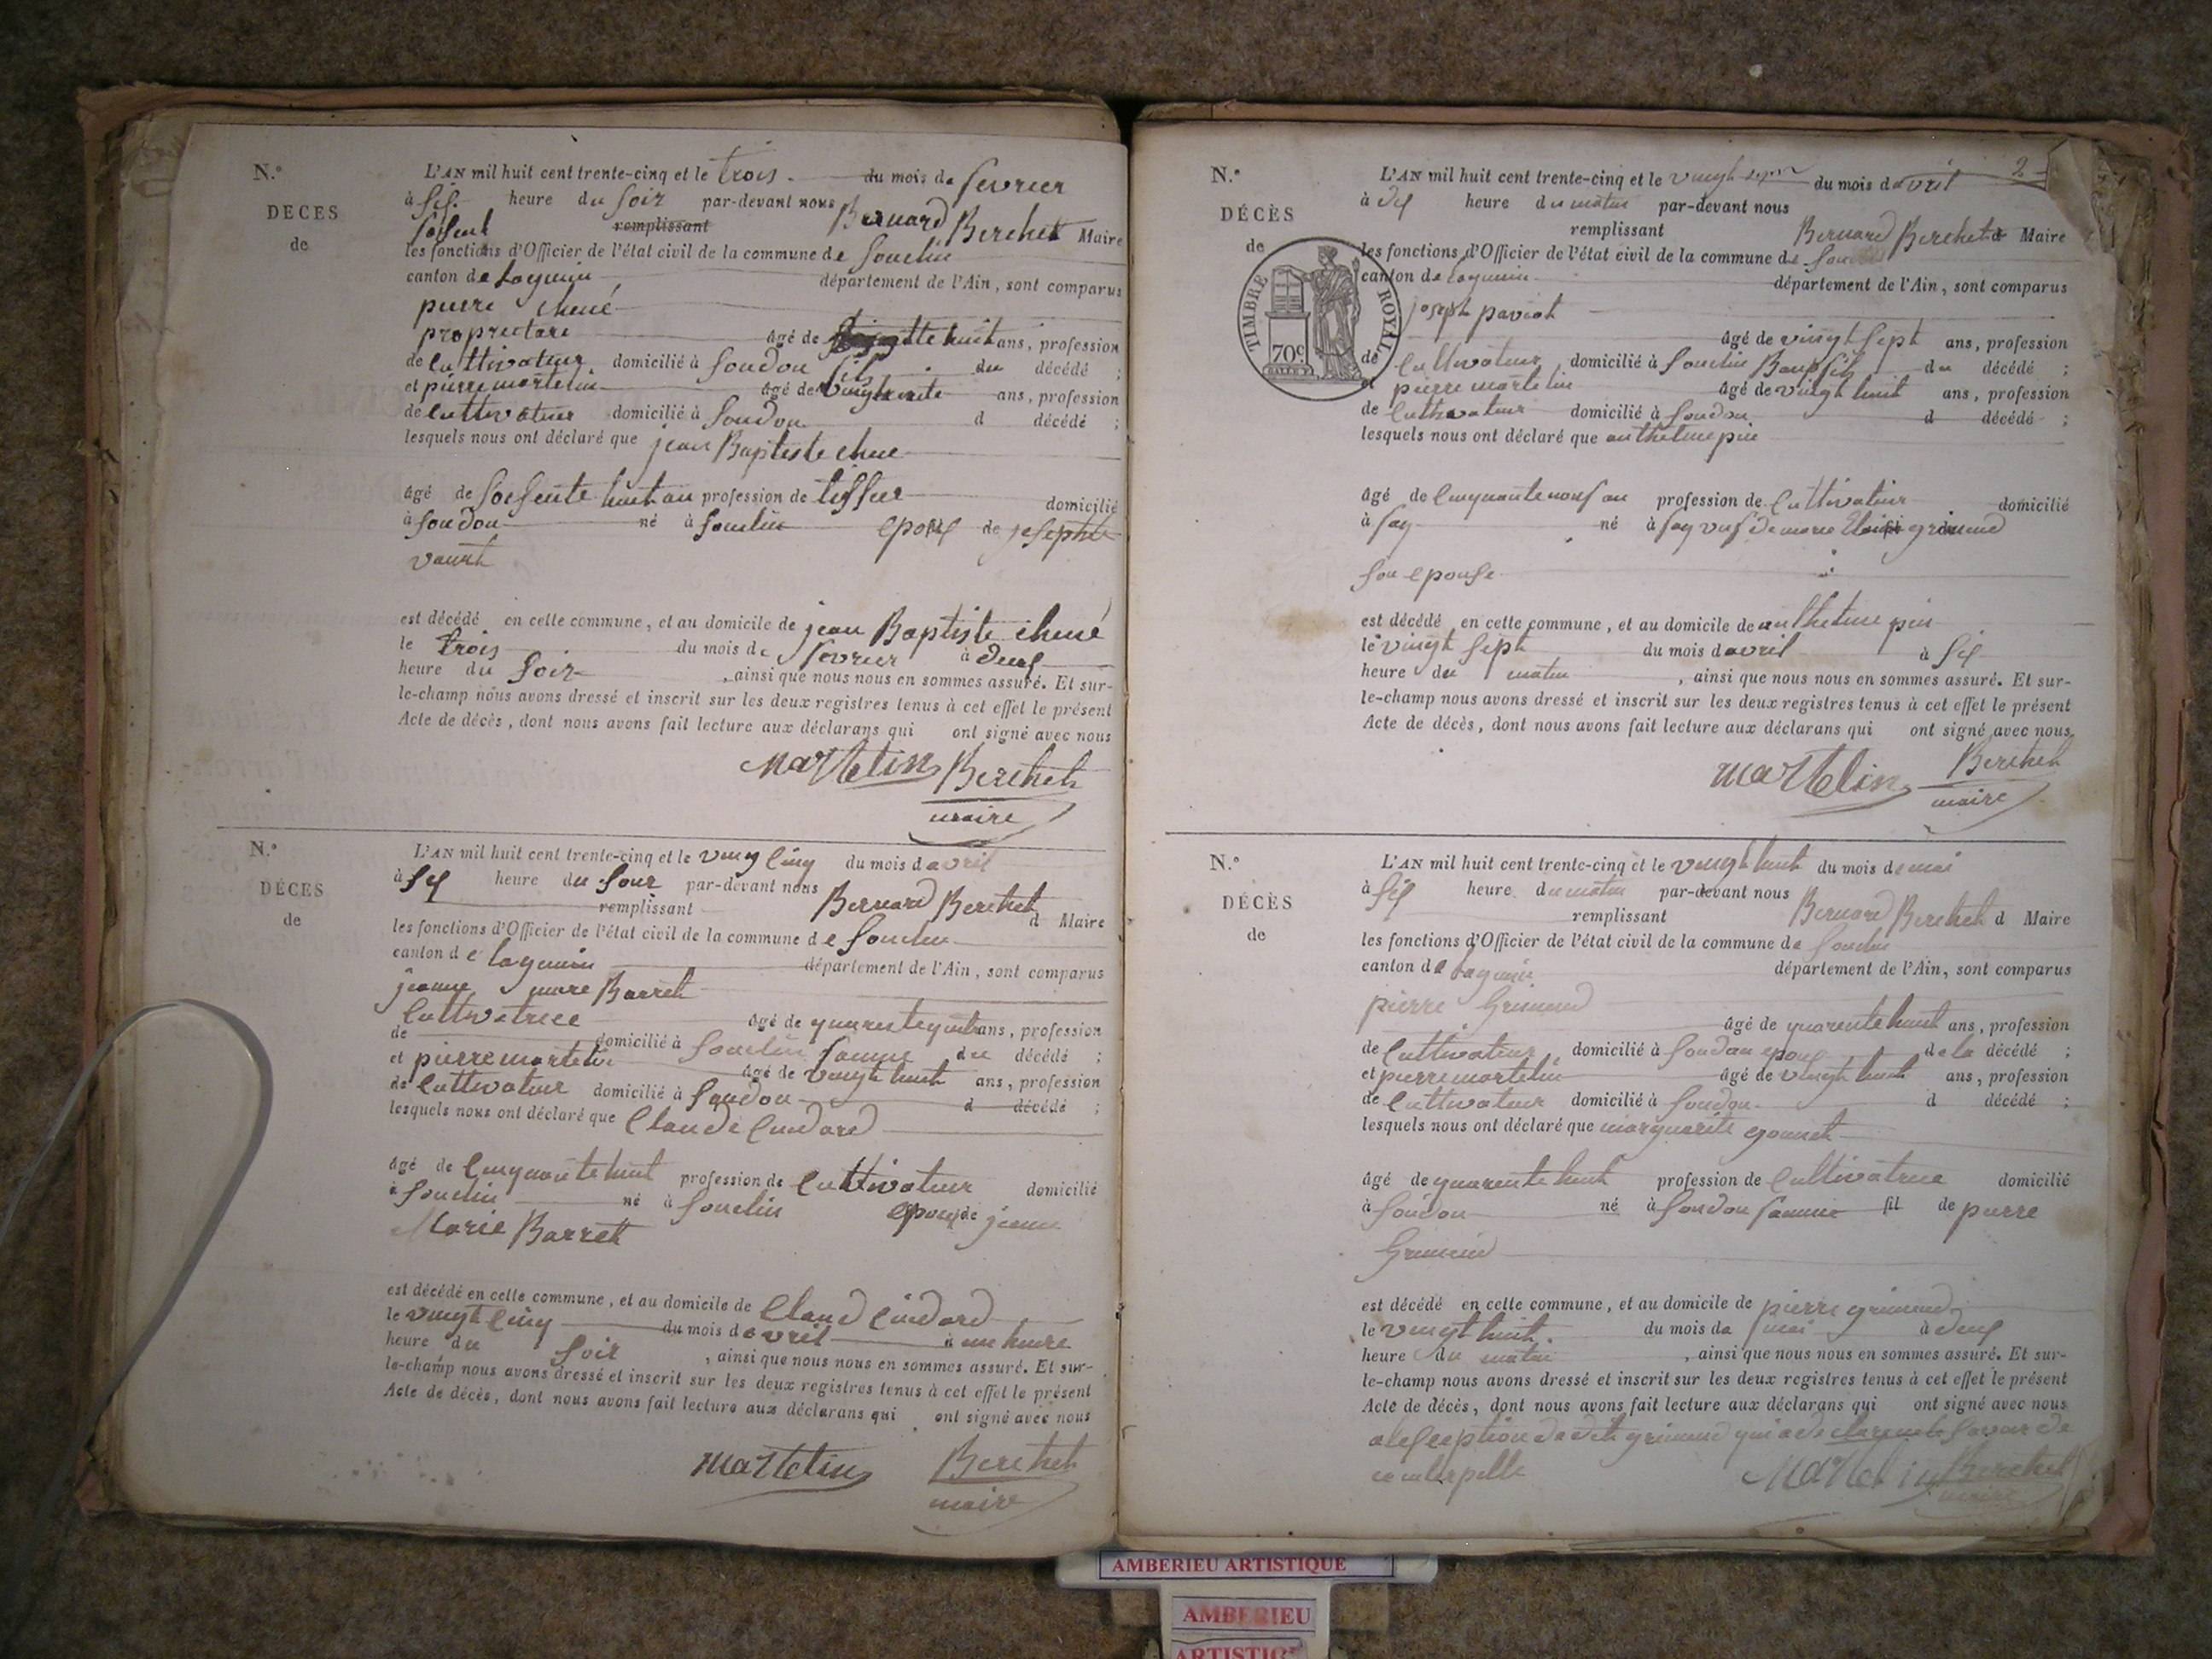 N.°
DECES
de
L'AN mil huit cent trente-cinq et le trois du mois de fevrier
à sis heure du soir par-devant nous Bernard Berchet Maire
remplissant
les fonctions d'Officier de l'état civil de la commune de Souclin
canton de Lagnieu département de l'Ain, sont comparus
pierre chené
propriétaire âgé de huit ans, profession
de cultivateur domicilié à Soudon fils du décédé ;
et pierre martelin âgé de vingt ans, profession
de cultivateur domicilié à Soudon d décédé ;
lesquels nous ont déclaré que jean Baptiste chene
âgé de soisente huit an profession de tisseur domicilié
à Soudon né à Souclin epoux de josephte
est décédé en cette commune, et au domicile de jean Baptiste chené
le trois du mois de fevrier à deux
heure du soir , ainsi que nous nous en sommes assuré. Et sur-
le-champ nous avons dressé et inscrit sur les deux registres tenus à cet effet le présent
Acte de décès, dont nous avons fait lecture aux déclarans qui ont signé avec nous
Martelin Berchet
maire
N.°
DÉCES
de
L'AN mil huit cent trente-cinq et le vingt cinq du mois d avril
à six heure du soir par-devant nous Bernard Berchet
remplissant d Maire
les fonctions d'Officier de l'état civil de la commune de Souclin
canton de lagnieu département de l'Ain, sont comparus
jeanne marie Barret
cultivatrice âgé de ans, profession
de domicilié à Souclin famme du décédé ;
et pierre martelin âgé de vingt huit ans, profession
de cultivateur domicilié à Soudon d décédé ;
lesquels nous ont déclaré que Claude Cindard
âgé de cinquante huit profession de cultivateur domicilié
à Souclin né à Souclin epoux de jeanne
Marie Barret
est décédé en cette commune, et au domicile de Claud Cindard
le vingt cinq du mois d avril à une heure
heure du soir , ainsi que nous nous en sommes assuré. Et sur-
le-champ nous avons dressé et inscrit sur les deux registres tenus à cet effet le présent
Acte de décès, dont nous avons fait lecture aux déclarans qui ont signé avec nous
Martelin Berchet
maire
2
N.°
DÉCÈS
de
TIMBRE ROYAL
70c
L'AN mil huit cent trente-cinq et le vingt sept du mois d avril
à dix heure du matin par-devant nous
remplissant Bernard Berchet d Maire
les fonctions d'Officier de l'état civil de la commune de Souclin
canton de lagnieu département de l'Ain, sont comparus
joseph paviot
âgé de vingt sept ans, profession
de cultivateur domicilié à Souclin Beaufils du décédé ;
et pierre martelin âgé de vingt huit ans, profession
de cultivateur domicilié à Soudon d décédé ;
lesquels nous ont déclaré que anthelme pin
âgé de cinquante neuf an profession de cultivateur domicilié
à fay né à fay vuf de marie grimend
son epouse
est décédé en cette commune, et au domicile de anthelme pin
le vingt sept du mois d avril à six
heure du matin , ainsi que nous nous en sommes assuré. Et sur-
le-champ nous avons dressé et inscrit sur les deux registres tenus à cet effet le présent
Acte de décès, dont nous avons fait lecture aux déclarans qui ont signé avec nous
Martelin Berchet
maire
N.°
DÉCÈS
de
L'AN mil huit cent trente-cinq et le vingt huit du mois de mai
à six heure du matin par-devant nous
remplissant Bernard Berchet d Maire
les fonctions d'Officier de l'état civil de la commune de Souclin
canton de lagnieu département de l'Ain, sont comparus
pierre Grimend
âgé de quarente huit ans, profession
de cultivateur domicilié à Soudon epoux de la décédé ;
et pierre martelin âgé de vingt huit ans, profession
de cultivateur domicilié à Soudon d décédé ;
lesquels nous ont déclaré que marguerite gonnet
âgé de quarente huit profession de cultivatrice domicilié
à Soudon né à Soudon famme fil de pierre
Grimend
est décédé en cette commune, et au domicile de pierre grimend
le vingt huit du mois de mai à deux
heure du matin , ainsi que nous nous en sommes assuré. Et sur-
le-champ nous avons dressé et inscrit sur les deux registres tenus à cet effet le présent
Acte de décès, dont nous avons fait lecture aux déclarans qui ont signé avec nous
grimend qui a
Martelin Berchet
maire
AMBERIEU ARTISTIQUE
AMBERIEU
ARTISTIQUE